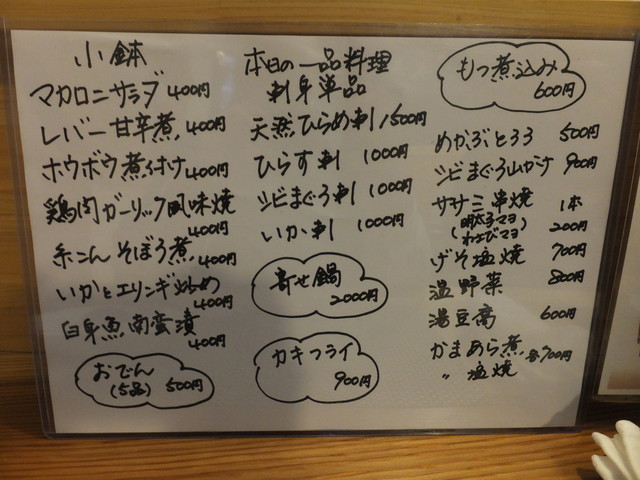 小鉢
マカロニサラダ 400円
レバー甘辛煮 400円
ホウボウ煮付け 400円
鶏肉ガーリック風味焼
400円
糸こんそぼろ煮 400円
いかとエリンギ炒め
400円
白身魚南蛮漬
400円
おでん
(5品) 500円
本日の一品料理
刺身単品
天然ひらめ刺 1500円
ひらす刺 1000円
シビまぐろ刺 1000円
いか刺 1000円
寄せ鍋
2000円
カキフライ
900円
もつ煮込み
600円
めかぶとろろ 500円
シビまぐろ山かけ 900円
ササミ串焼 1本
(明太子マヨ
わさびマヨ) 200円
げそ塩焼 700円
温野菜 800円
湯豆腐 600円
かまあら煮 各700円
〃 塩焼